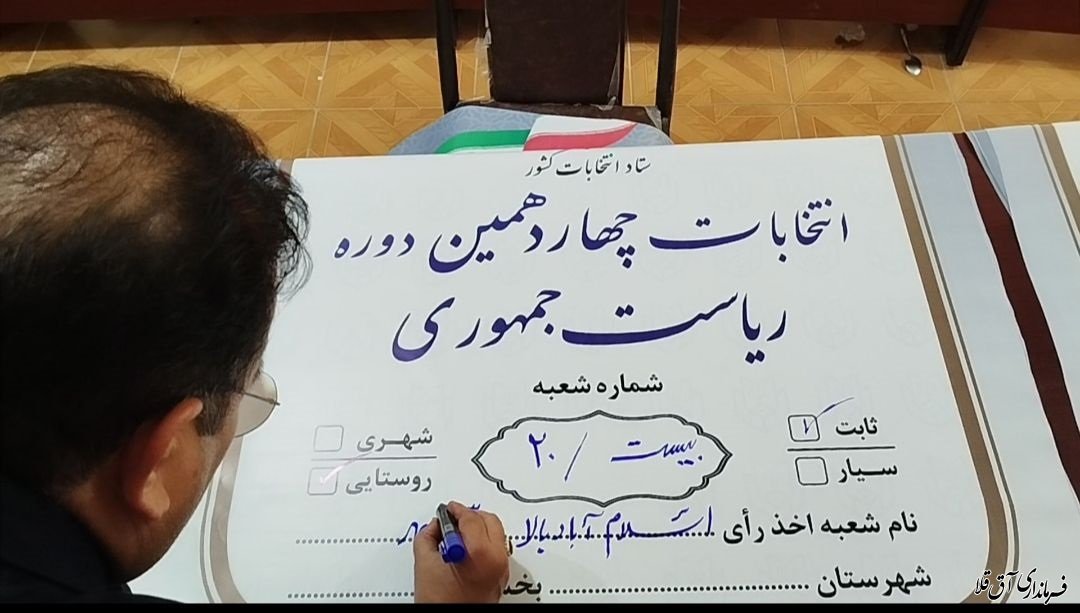 ستاد انتخابات کشور
انتخابات چهاردهمین دوره
ریاست جمهوری
شماره شعبه
ثابت
بیست / ۲۰
شهری
سیار
روستایی
نام شعبه اخذ رأی اسلام آباد بالا
شهرستان
فرمانداری آق قلا